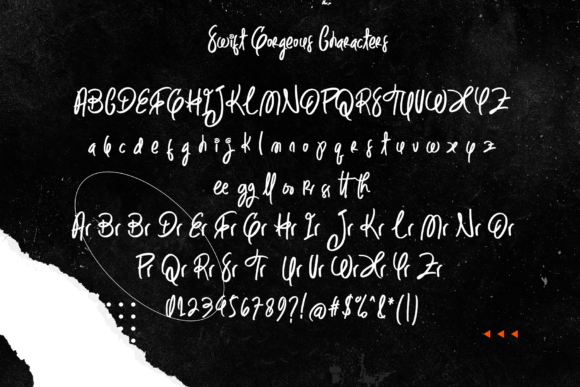 Swift Gorgeous Characters
ABCDEFGHIJKLMNOPQRSTUVWXYZ
a b c d e f g h i j k l m n o p q r s t u v w x y z
ee gg ll oo rr ss tt th
Ar Br Br Dr Er Fr Gr Hr Ir Jr Kr Lr Mr Nr Or
Pr Qr Rr Sr Tr Ur Vr Wr Xr Yr Zr
0123456789?!@#$%^&*()